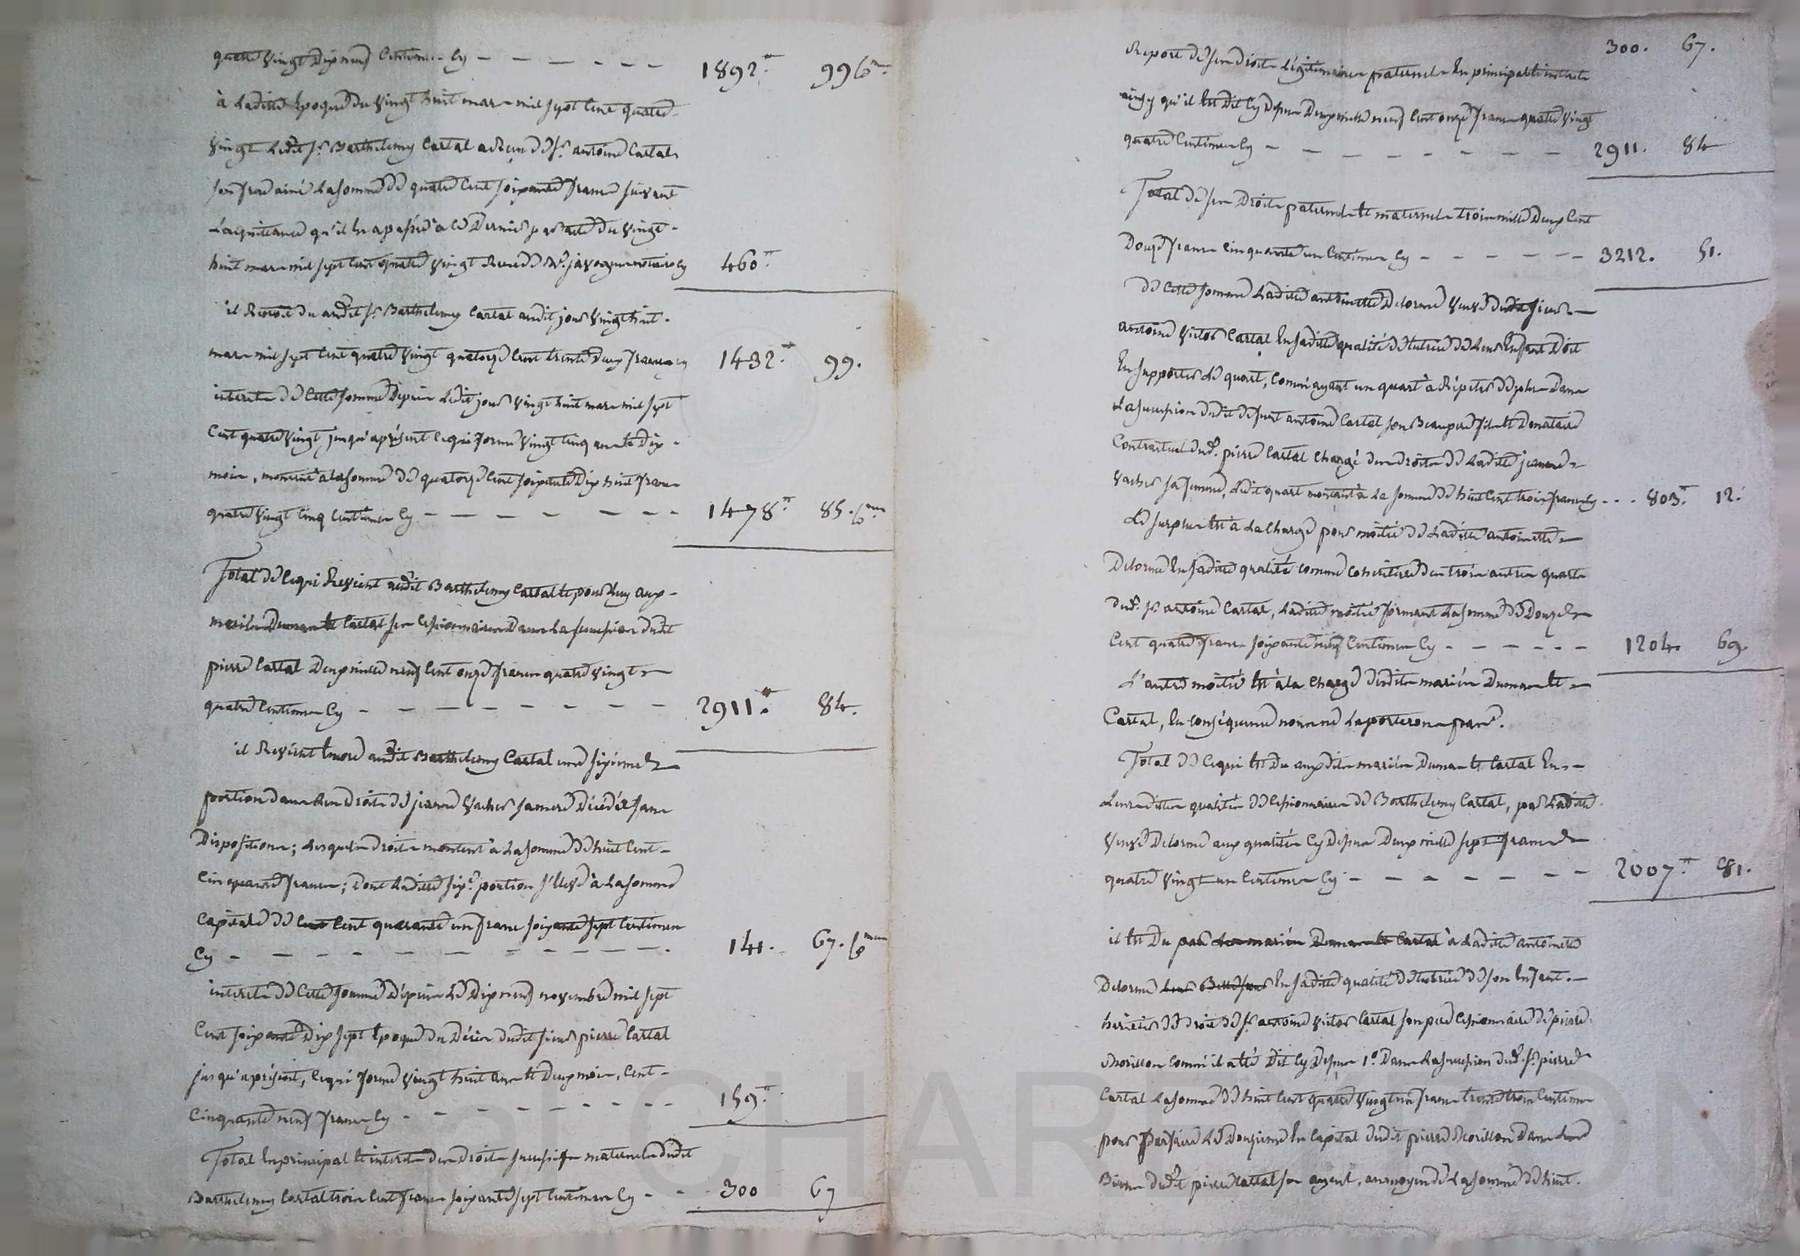 quatre vingt Dix neuf Centimes Cy - - - - - - 1892.# 99 c.mes
à Laditte Epoque du vingt huit mars mil sept Cent quatre
vingt Ledit Sr. Barthelemy Cartal a Reçu de Sr. antoine Cartal
son frere ainé La somme de quatre Cent soixante francs suivant
La quittance qu'il En a passée à Ce Dernier par acte du vingt
huit mars mil sept Cent quatre vingt Receu de Me. notaire Cy 460.#
il Revenoit du audit Sr. Barthelemy Cartal audit jour vingt huit
mars mil sept Cent quatre vingt quatorze Cent trente Deux francs 1432.# 99.
interets de Cette somme Depuis Ledit jour vingt huit mars mil sept
Cent quatre vingt jusqu'à présent Ce qui forme vingt Cinq ans et Dix
mois, montent à la somme de quatorze Cent soixante Dix huit francs
quatre vingt Cinq Centimes Cy - - - - - - 1478.# 85. c.mes
Total de Ce qui Revient audit Barthelemy Cartal et pour Luy aux
mariés Dumas et Cartal ses Cessionnaires Dans La succession dudit
pierre Cartal Deux mille neuf Cent onze francs quatre vingt
quatre Centimes Cy - - - - - - - - 2911.# 84.
il Revient Encore audit Barthelemy Cartal une sixième
portion dans Les Droits de jeanne Vacher sa mere Décédée sans
Dispositions; Lesquels Droits montent à La somme de huit Cent
Cinquante francs; Dont Laditte six.e portion s'Eleve à La somme
Capitale de Cent quarante un francs soixante sept Centimes
Cy - - - - - - - - - - - 141. 67. c.mes
interets de Cette somme Depuis Le Dix neuf novembre mil sept
Cent soixante Dix sept Epoque du Décès dudit sieur pierre Cartal
jusqu'à présent, Ce qui forme vingt huit ans et Deux mois, Cent
Cinquante neuf francs Cy - - - - - - - - 159.#
Total En principal et interets des Droits successifs maternels dudit
Barthelemy Cartal trois Cent francs soixante sept Centimes Cy - - 300 67
Report de ses Droits Légitimaires paternels En principal et interets 300. 67.
ainsy qu'il Est Dit Cy Dessus Deux mille neuf Cent onze francs quatre vingt
quatre Centimes Cy - - - - - - - - 2911. 84
Total de ses Droits paternels et maternels trois mille Deux Cent
Douze francs Cinquante un Centimes Cy - - - - - 3212. 51.
de Cette somme Laditte antoinette Delorme veuve dudit sieur
antoine Victor Cartal En saditte qualité de tutrice de Leur Enfant Doit
En supporter Le quart, Comme ayant un quart à Répéter de plus Dans
La succession dudit défunt antoine Cartal son Beaupere fils et Donataire
Contractuel dud. pierre Cartal Chargé des droits de Laditte jeanne
Vacher sa femme, Ledit quart montant à La somme de huit Cent trois francs Cy - - - 803.# 12.
Le surplus Est à La Charge pour moitié de Laditte antoinette
Delorme En saditte qualité comme des trois autres quarts
dud. Sr antoine Cartal, Laditte moitié formant La somme de Douze
Cent quatre francs soixante neuf Centimes Cy - - - - - 1204. 69.
L'autre moitié Est à la Charge desdits mariés Dumas et
Cartal, En conséquence nous ne La porterons pas.
Total de Ce qui Est Du auxdits mariés Dumas et Cartal En
Leurs dittes qualités de Cessionnaires de Barthelemy Cartal, par Laditte
Veuve Delorme aux qualités Cy Dessus Deux mille sept francs
quatre vingt un Centimes Cy - - - - - - - 2007.# 81.
il Est Du par Les mariés Dumas et Cartal à Laditte antoinette
Delorme En saditte qualité de tutrice de son Enfant
heritier de droit de Sr. antoine Victor Cartal son pere Cessionnaire de pierre
Morillon Comme il a Eté Dit Cy Dessus 1.o Dans La succession dud. Sr. pierre
Cartal La somme de huit Cent quatre vingt un francs trente trois Centimes
pour parfaire Le Douzieme En Capital dudit pierre Morillon Dans Les
Biens dudit pierre Cartal son ayeul, au moyen de La somme de huit